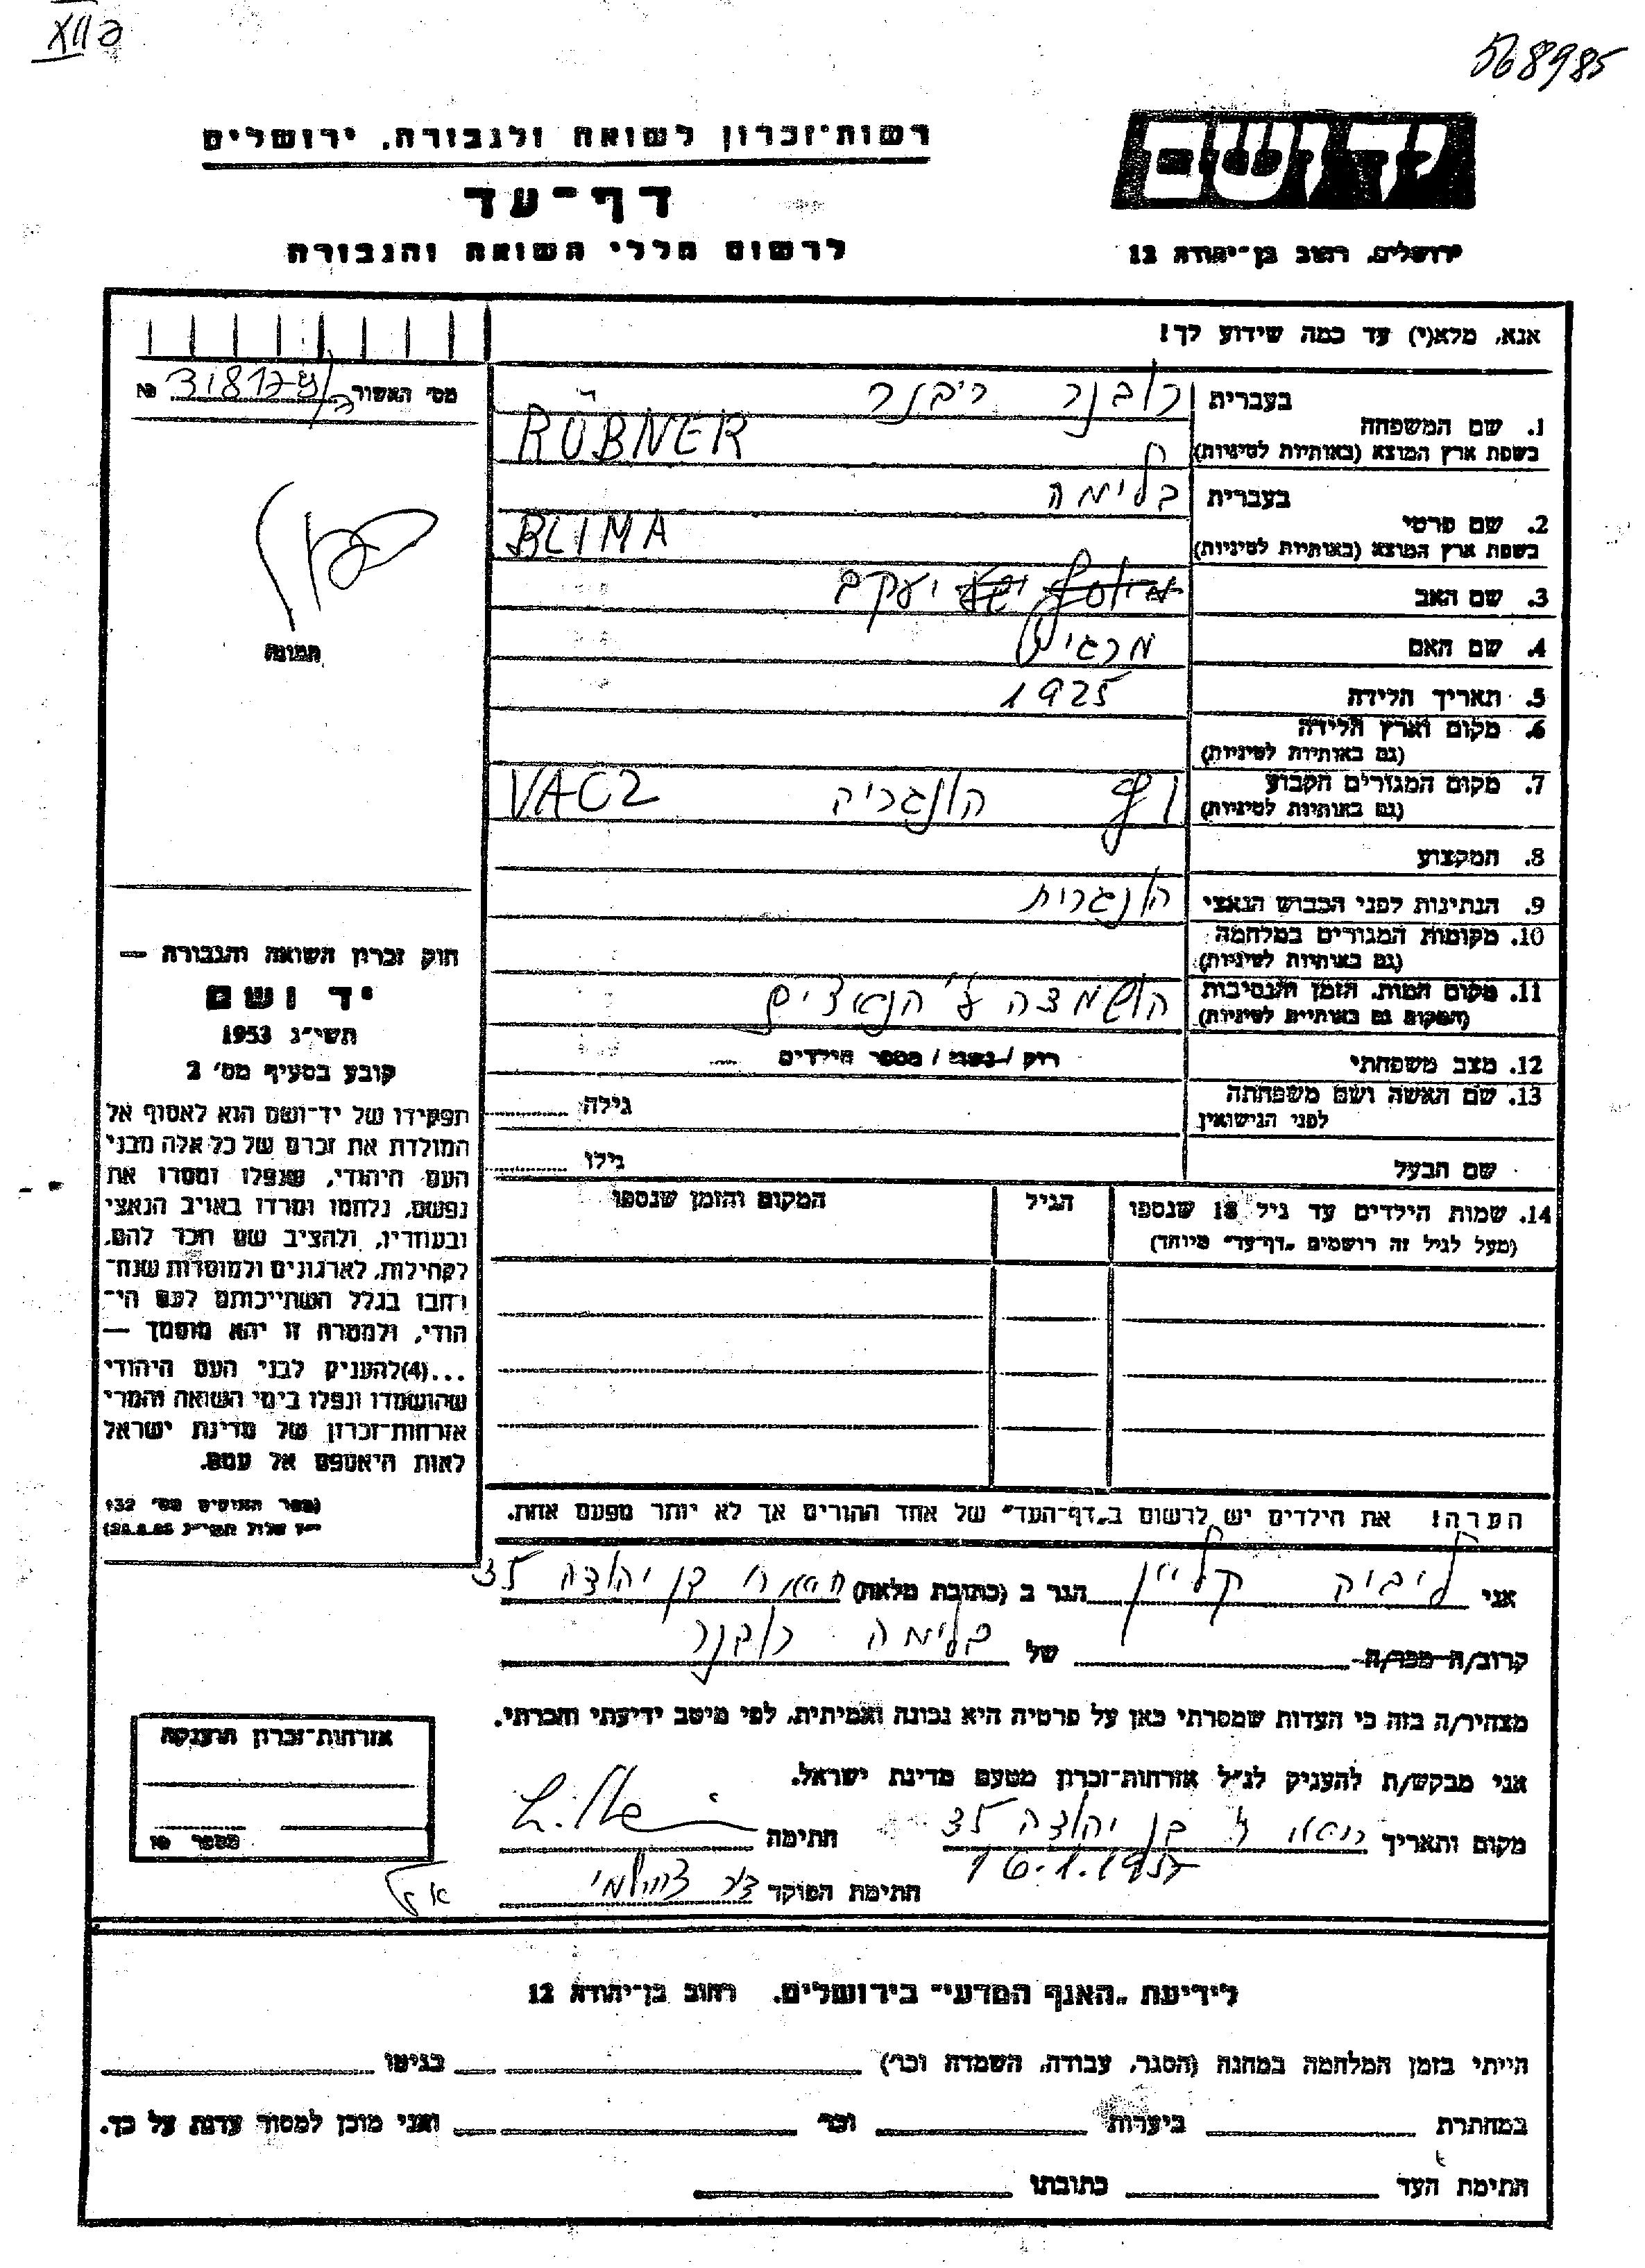 568985
רשות־זכרון לשואה ולגבורה, ירושלים
יד ושם
דף־עד
לרשום חללי השואה והגבורה
ירושלים, רחוב בן־יהודה 12
אנא, מלא(י) עד כמה שידוע לך!
מס׳ האשור № 
1. שם המשפחה
בעברית רובנר ריבנר
בשפת ארץ המוצא (באותיות לטיניות) RÜBNER
2. שם פרטי
בעברית בלימה
בשפת ארץ המוצא (באותיות לטיניות) BLIMA
3. שם האב יעקב
4. שם האם מרגיט
תמונה
5. תאריך הלידה 1925
6. מקום וארץ הלידה
(גם באותיות לטיניות)
7. מקום המגורים הקבוע וץ הונגריה VACZ
(גם באותיות לטיניות)
8. המקצוע
9. הנתינות לפני הכבוש הנאצי הונגרית
10. מקומות המגורים במלחמה
(גם באותיות לטיניות)
11. מקום המות, הזמן והנסיבות הושמדה ע״י הנאצים
(המקום גם באותיות לטיניות)
12. מצב משפחתי רוק / נשוי / מספר הילדים
13. שם האשה ושם משפחתה גילה
לפני הנישואין
שם הבעל גילו
14. שמות הילדים עד גיל 18 שנספו הגיל המקום והזמן שנספו
(מעל לגיל זה רושמים „דף־עד״ מיוחד)
חוק זכרון השואה והגבורה —
יד ושם
תשי״ג 1953
קובע בסעיף מס׳ 2
תפקידו של יד־ושם הוא לאסוף אל
המולדת את זכרם של כל אלה מבני
העם היהודי, שנפלו ומסרו את
נפשם, נלחמו ומרדו באויב הנאצי
ובעוזריו, ולהציב שם וזכר להם,
לקהילות, לארגונים ולמוסדות שנח־
רבו בגלל השתייכותם לעם הי־
הודי, ולמטרה זו יהא מוסמך —
...(4)להעניק לבני העם היהודי
שהושמדו ונפלו בימי השואה והמרי
אזרחות־זכרון של מדינת ישראל
לאות היאספם אל עמם.
(ספר החוקים מס׳ 132
הערה! את הילדים יש לרשום ב„דף־העד״ של אחד ההורים אך לא יותר מפעם אחת.
אני ליביק קליין הגר ב (כתובת מלאה) בן יהודה 35
קרוב/ה מכר/ה של בלימה רובנר
מצהיר/ה בזה כי העדות שמסרתי כאן על פרטיה היא נכונה ואמיתית, לפי מיטב ידיעתי והכרתי.
אני מבקש/ת להעניק לנ״ל אזרחות־זכרון מטעם מדינת ישראל.
מקום ותאריך בן יהודה 35 חתימה
16.1.1957
חתימת הפוקד
אזרחות־זכרון הוענקה
מספר №
לידיעת „האגף המדעי״ בירושלים, רחוב בן־יהודה 12
הייתי בזמן המלחמה במחנה (הסגר, עבודה, השמדה וכו׳) בגיטו
במחתרת ביערות וכו׳ ואני מוכן למסור עדות על כך.
חתימת העד כתובתו